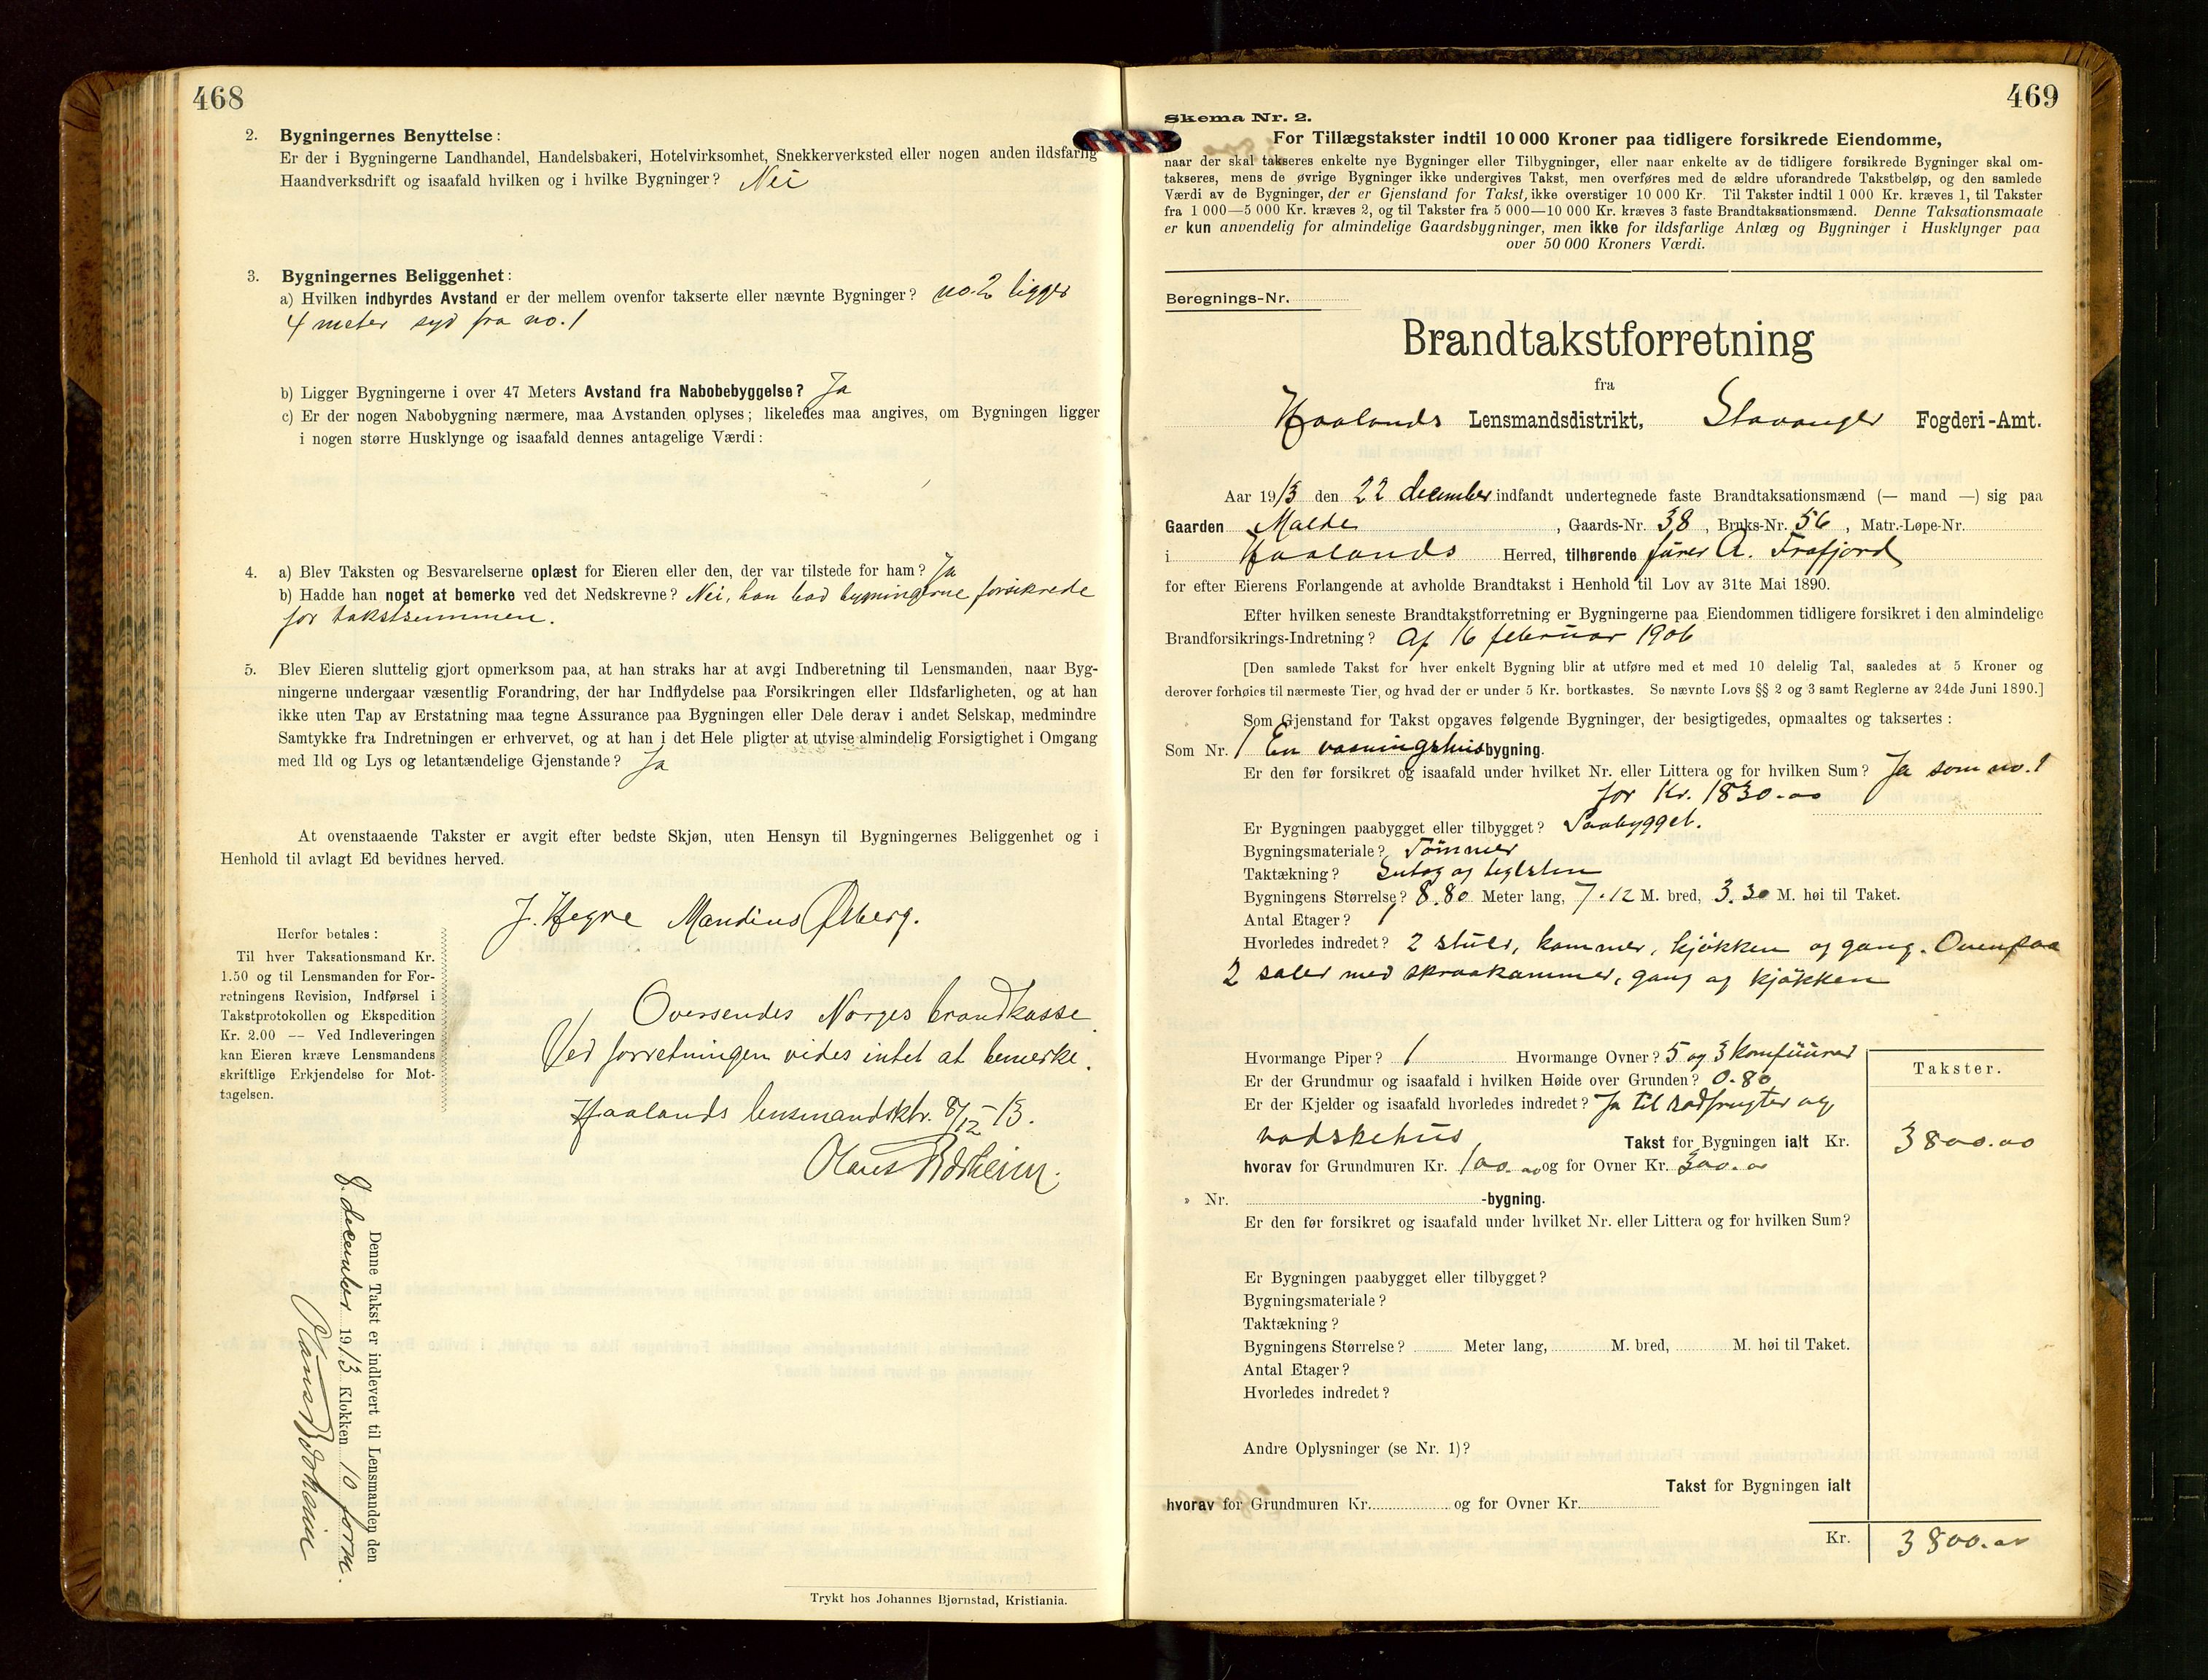 468
2. Bygningernes Benyttelse:
Er der i Bygningerne Landhandel, Handelsbakeri, Hotelvirksomhet, Snekkerverksted eller nogen anden ildsfarlig
Haandverksdrift og isaafald hvilken og i hvilke Bygninger? Nei
3. Bygningernes Beliggenhet:
a) Hvilken indbyrdes Avstand er der mellem ovenfor takserte eller nævnte Bygninger? no. 2 ligger
4 meter syd fra no. 1
b) Ligger Bygningerne i over 47 Meters Avstand fra Nabobebyggelse? Ja
c) Er der nogen Nabobygning nærmere, maa Avstanden oplyses; likeledes maa angives, om Bygningen ligger
i nogen større Husklynge og isaafald dennes antagelige Værdi:
4. a) Blev Taksten og Besvarelserne oplæst for Eieren eller den, der var tilstede for ham? Ja
b) Hadde han noget at bemerke ved det Nedskrevne? Nei, han bad bygningerne forsikrede
for takstsummen.
5. Blev Eieren sluttelig gjort opmerksom paa, at han straks har at avgi Indberetning til Lensmanden, naar Byg-
ningerne undergaar væsentlig Forandring, der har Indflydelse paa Forsikringen eller Ildsfarligheten, og at han
ikke uten Tap av Erstatning maa tegne Assurance paa Bygningen eller Dele derav i andet Selskap, medmindre
Samtykke fra Indretningen er erhvervet, og at han i det Hele pligter at utvise almindelig Forsigtighet i Omgang
med Ild og Lys og letantændelige Gjenstande? Ja
At ovenstaaende Takster er avgit efter bedste Skjøn, uten Hensyn til Bygningernes Beliggenhet og i
Henhold til avlagt Ed bevidnes herved.
J. Hegre Mandius Ølberg.
Herfor betales:
Til hver Taksationsmand Kr.
1.50 og til Lensmanden for For-
retningens Revision, Indførsel i
Takstprotokollen og Ekspedition
Kr. 2.00 — Ved Indleveringen
kan Eieren kræve Lensmandens
skriftlige Erkjendelse for Mot-
tagelsen.
Oversendes Norges brandkasse.
Ved forretningen vides intet at bemerke.
Haalands lensmandsktr. 8/12-13.
Olaus Bdsheim.
Denne Takst er indlevert til Lensmanden den
8 december 1913 Klokken 10 form.
Olaus Bdsheim
Trykt hos Johannes Bjørnstad, Kristiania.
469
Skema Nr. 2.
For Tillægstakster indtil 10 000 Kroner paa tidligere forsikrede Eiendomme,
naar der skal takseres enkelte nye Bygninger eller Tilbygninger, eller naar enkelte av de tidligere forsikrede Bygninger skal om-
takseres, mens de øvrige Bygninger ikke undergives Takst, men overføres med de ældre uforandrede Takstbeløp, og den samlede
Værdi av de Bygninger, der er Gjenstand for Takst, ikke overstiger 10 000 Kr. Til Takster indtil 1 000 Kr. kræves 1, til Takster
fra 1 000—5 000 Kr. kræves 2, og til Takster fra 5 000—10 000 Kr. kræves 3 faste Brandtaksationsmænd. Denne Taksationsmaate
er kun anvendelig for almindelige Gaardsbygninger, men ikke for ildsfarlige Anlæg og Bygninger i Husklynger paa
over 50 000 Kroners Værdi.
Beregnings-Nr.
Brandtakstforretning
fra
Haalands Lensmandsdistrikt, Stavanger Fogderi-Amt.
Aar 1913 den 22 december indfandt undertegnede faste Brandtaksationsmænd (— mand —) sig paa
Gaarden Malde, Gaards-Nr. 38, Bruks-Nr. 56, Matr.-Løpe-Nr.
i Haalands Herred, tilhørende furer A. Frafjord
for efter Eierens Forlangende at avholde Brandtakst i Henhold til Lov av 31te Mai 1890.
Efter hvilken seneste Brandtakstforretning er Bygningerne paa Eiendommen tidligere forsikret i den almindelige
Brandforsikrings-Indretning? Af 16 februar 1906
[Den samlede Takst for hver enkelt Bygning blir at utføre med et med 10 delelig Tal, saaledes at 5 Kroner og
derover forhøies til nærmeste Tier, og hvad der er under 5 Kr. bortkastes. Se nævnte Lovs §§ 2 og 3 samt Reglerne av 24de Juni 1890.]
Som Gjenstand for Takst opgaves følgende Bygninger, der besigtigedes, opmaaltes og taksertes:
Som Nr. 1 En vaaningshusbygning.
Er den før forsikret og isaafald under hvilket Nr. eller Littera og for hvilken Sum? Ja som no. 1
for Kr. 1830.00
Er Bygningen paabygget eller tilbygget? Paabygget.
Bygningsmateriale? Tømmer
Taktækning? Sutag og teglsten
Bygningens Størrelse? 8.80 Meter lang, 7.12 M. bred, 3.30 M. høi til Taket.
Antal Etager? 1
Hvorledes indredet? 2 stuer, kammer, kjøkken og gang. Ovenpaa
2 saler med skraakammer, gang og kjøkken
Hvormange Piper? 1 Hvormange Ovner? 5 og 3 komfuurer
Er der Grundmur og isaafald i hvilken Høide over Grunden? 0.80
Er der Kjelder og isaafald hvorledes indredet? Ja til rodfrugter og
vadskehus, Takst for Bygningen ialt Kr.
hvorav for Grundmuren Kr. 100.00 og for Ovner Kr. 300.00
Takster.
3800.00
» Nr. -bygning.
Er den før forsikret og isaafald under hvilket Nr. eller Littera og for hvilken Sum?
Er Bygningen paabygget eller tilbygget?
Bygningsmateriale?
Taktækning?
Bygningens Størrelse? Meter lang, M. bred, M. høi til Taket.
Antal Etager?
Hvorledes indredet?
Andre Oplysninger (se Nr. 1)?
Takst for Bygningen ialt
hvorav for Grundmuren Kr. og for Ovner Kr.
Kr. 3800.00